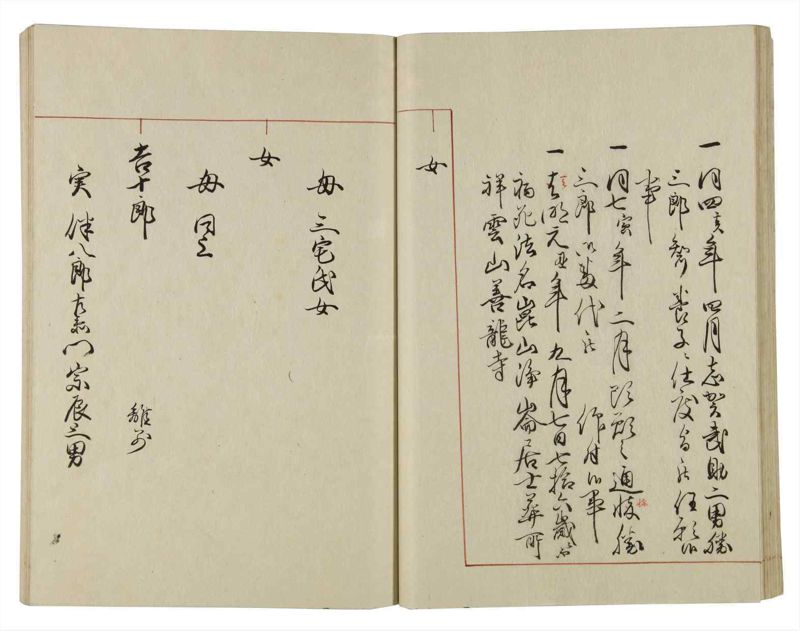 一同四亥年四月志賀武助二男勝
三郎聟養子ニ仕度旨任願候
事
一同七寅年二月願之通勝
三郎番代被 仰付候事
一天明元丑年九月七日七拾六歳ニ而
病死法名崑山浄崙居士葬所
祥雲山善龍寺
女
母 三宅氏女
女
母 同上
吉十郎 離別
実 伴八郎右衛門宗辰三男